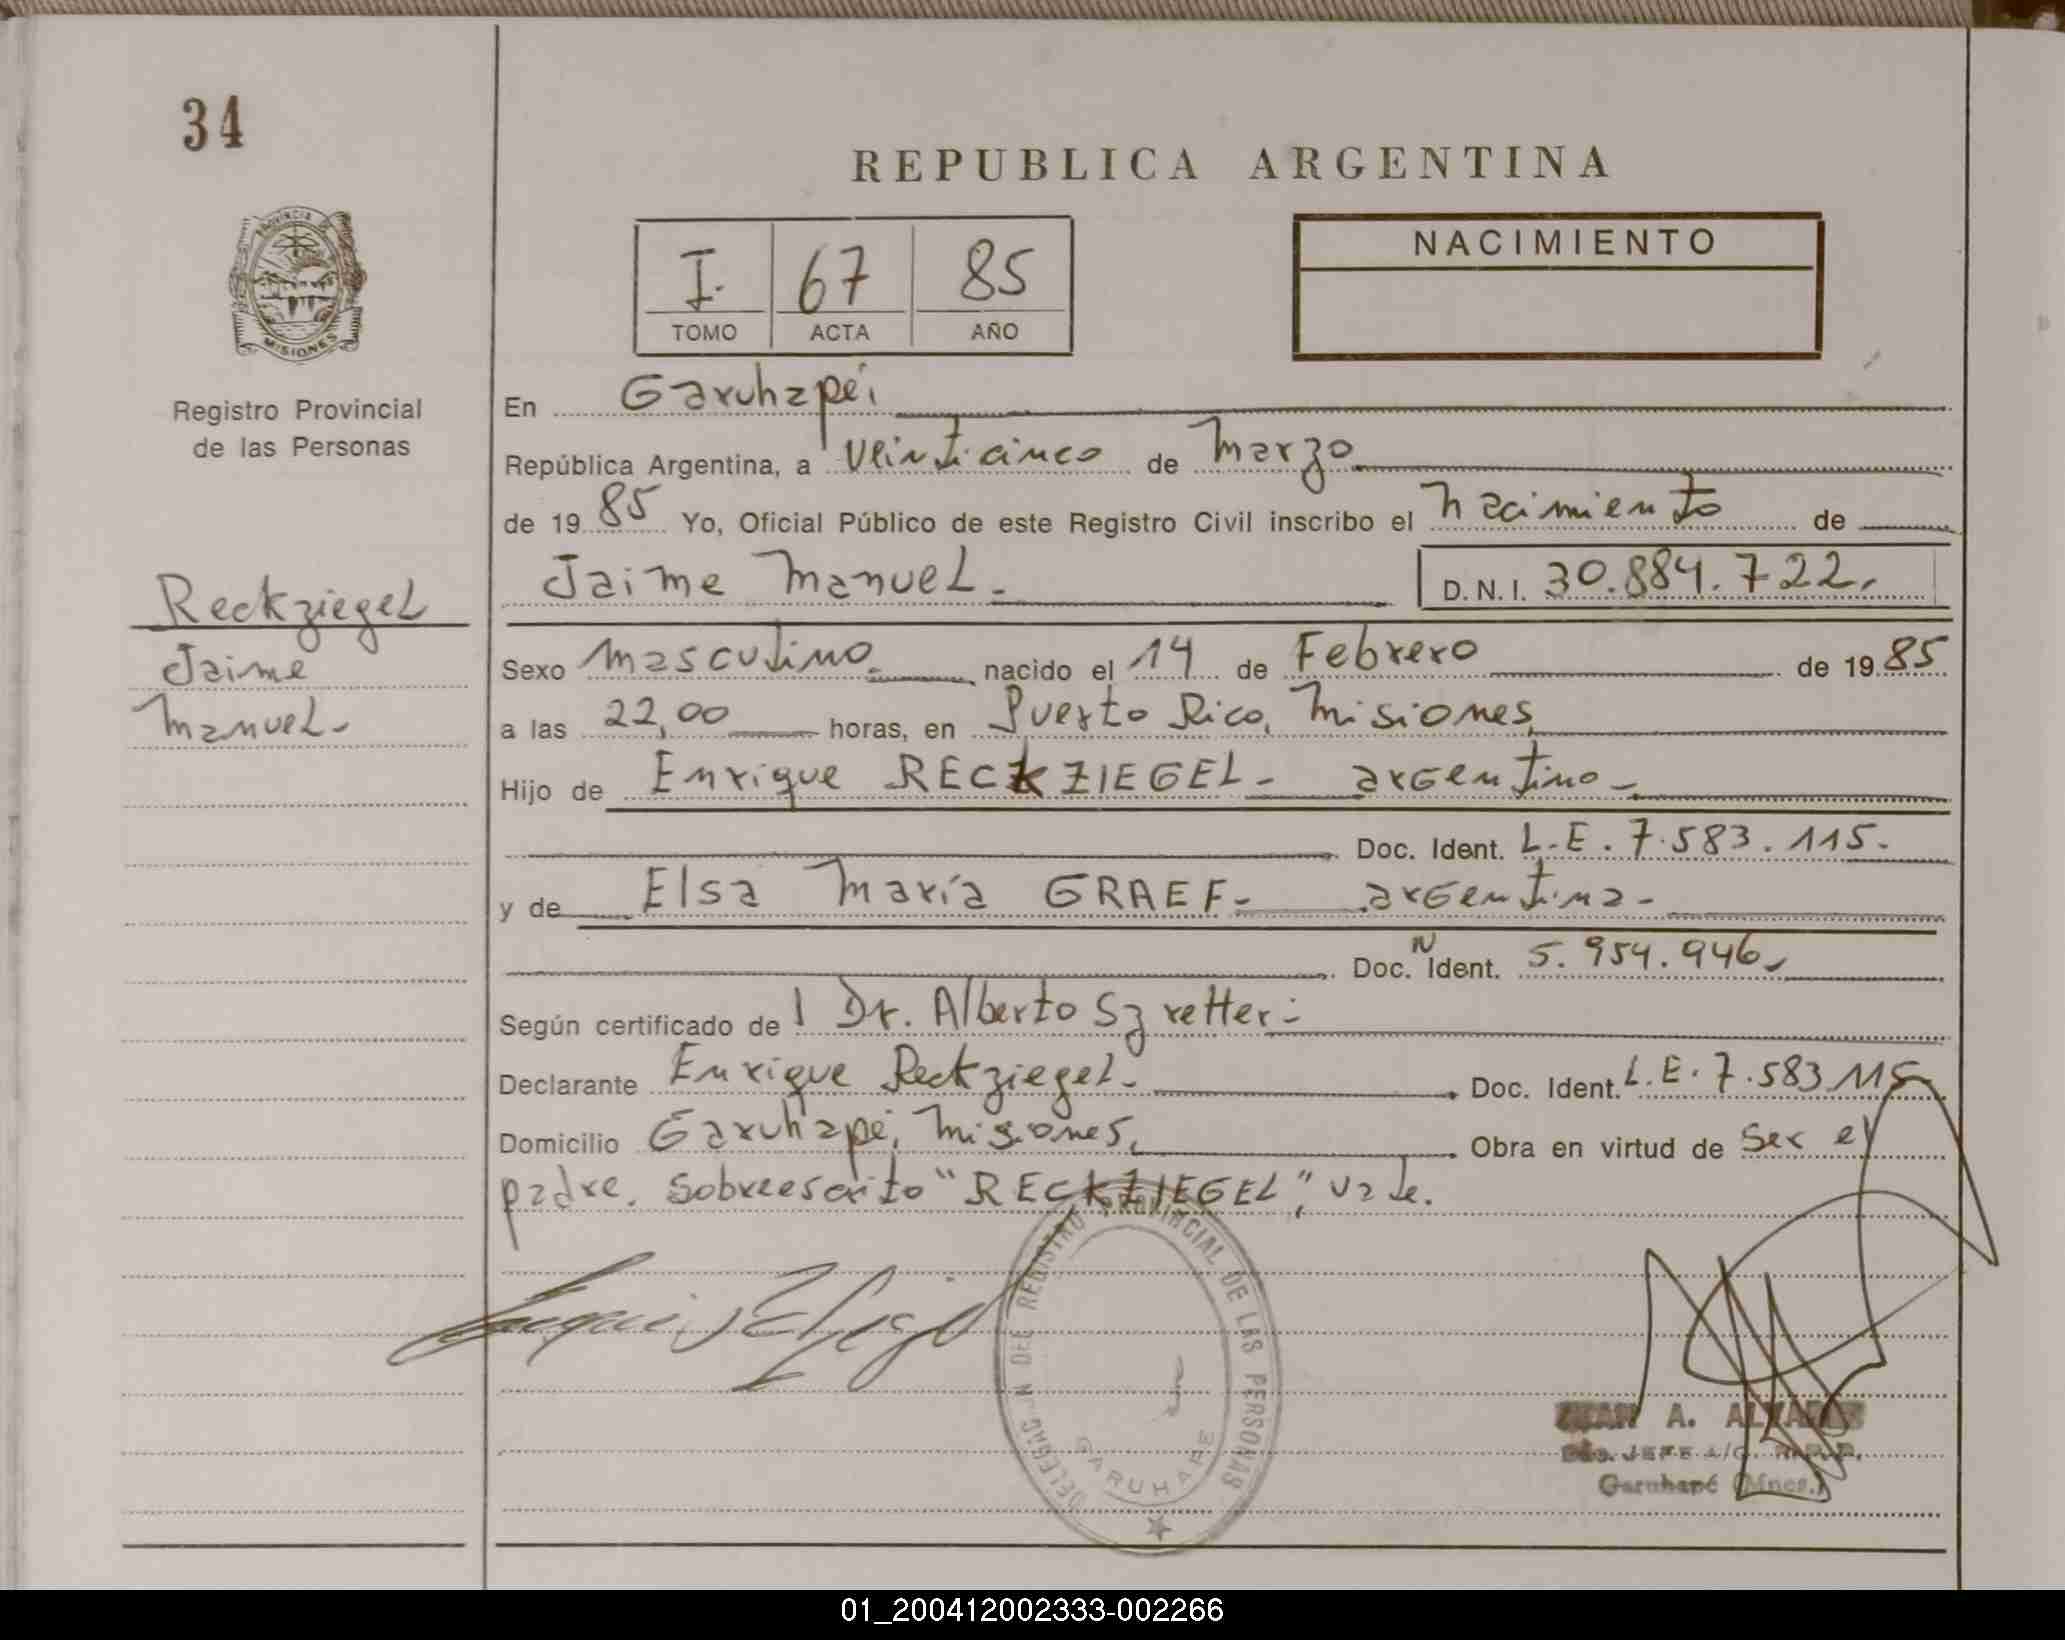 34
REPUBLICA ARGENTINA
PROVINCIA DE
MISIONES
I. 67 85
TOMO ACTA AÑO
NACIMIENTO
Registro Provincial
de las Personas
En Garuhapé,
República Argentina, a veinticinco de Marzo
de 1985 Yo, Oficial Público de este Registro Civil inscribo el nacimiento de
Jaime Manuel.- D.N.I. 30.884.722.
Reckziegel
Jaime
Manuel-
Sexo masculino. nacido el 14 de Febrero de 1985
a las 22,00 horas, en Puerto Rico, Misiones,
Hijo de Enrique RECKZIEGEL- argentino-
Doc. Ident. L.E. 7.583.115.
y de Elsa María GRAEF- argentina-
Doc. N Ident. 5.954.946,
Según certificado de l Dr. Alberto Szretter-
Declarante Enrique Reckziegel- Doc. Ident. L.E. 7.583.115
Domicilio Garuhapé, Misiones, Obra en virtud de ser el
padre. Sobreescrito "RECKZIEGEL", vale.
DELEGACION DEL REGISTRO PROVINCIAL DE LAS PERSONAS
GARUHAPE
JUAN A.
JEFE A/C. R.P.P.
Garuhapé (Mnes.)
01_200412002333-002266